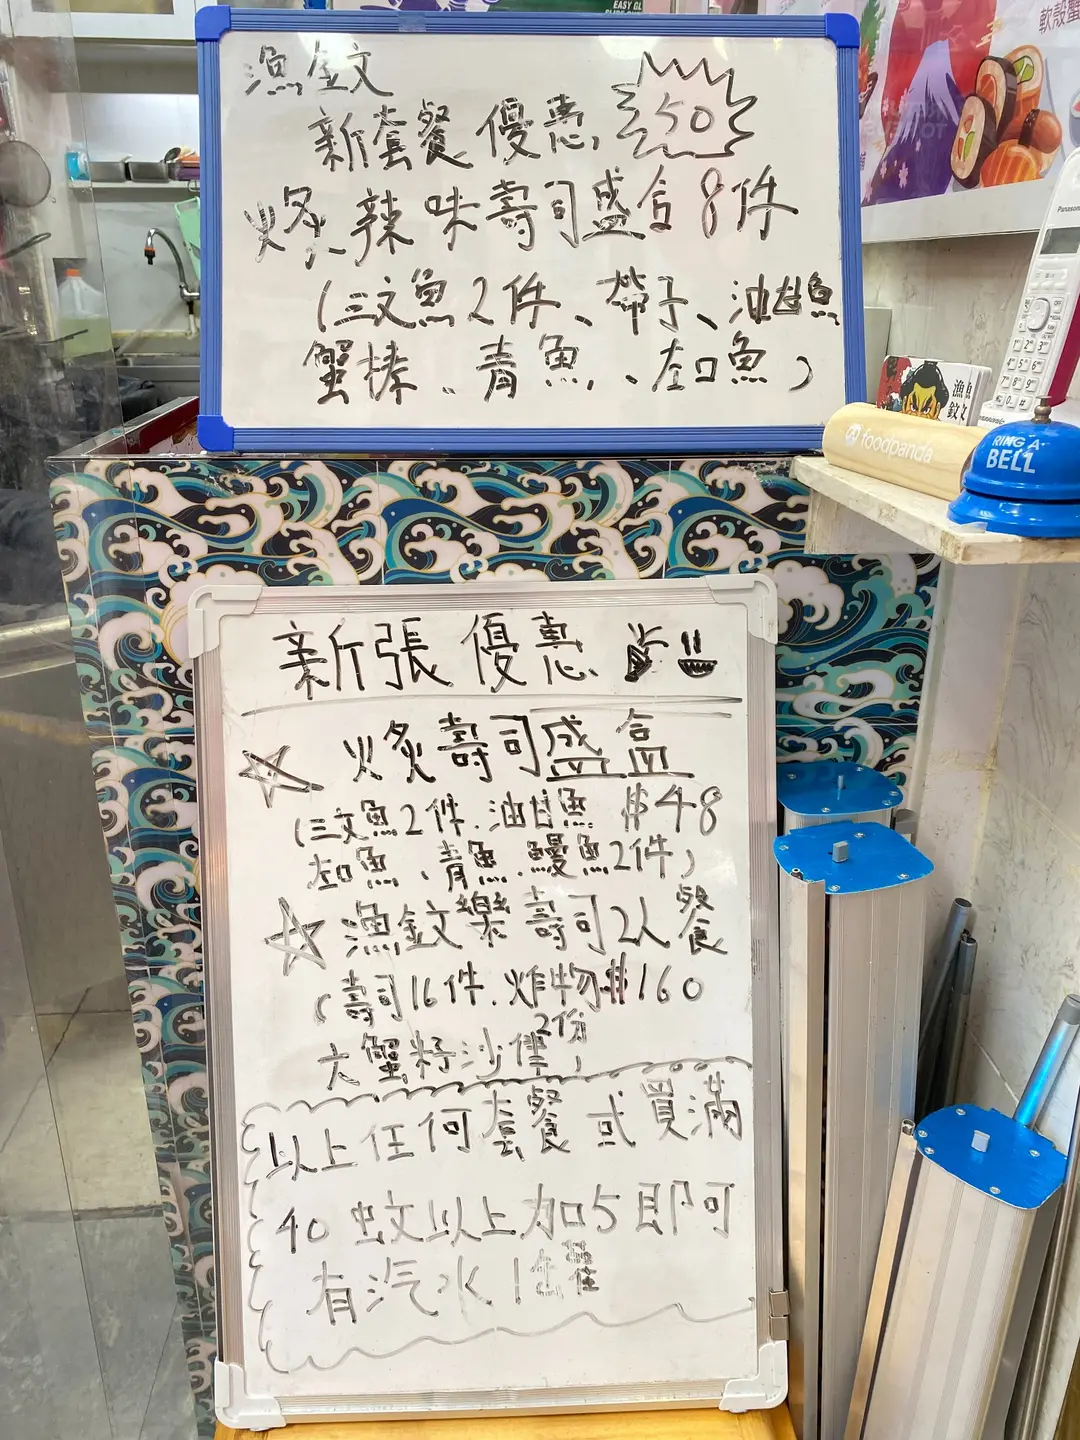 EASY GL
漁鈫文
新套餐優惠 50
炙辣味壽司盛合8件
(三文魚2件、帶子、油甘魚
蟹棒、青魚、左口魚)
軟殼蟹
Panasonic
漁
鈫文
foodpanda
RING A
BELL
新張優惠
炙壽司盛盒
(三文魚2件.油甘魚 $48
左口魚、青魚.鰻魚2件)
漁鈫樂壽司2人餐
(壽司16件.炸物$160
2份
大蟹籽沙律)
以上任何套餐或買滿
40蚊以上加5即可
有汽水1罐